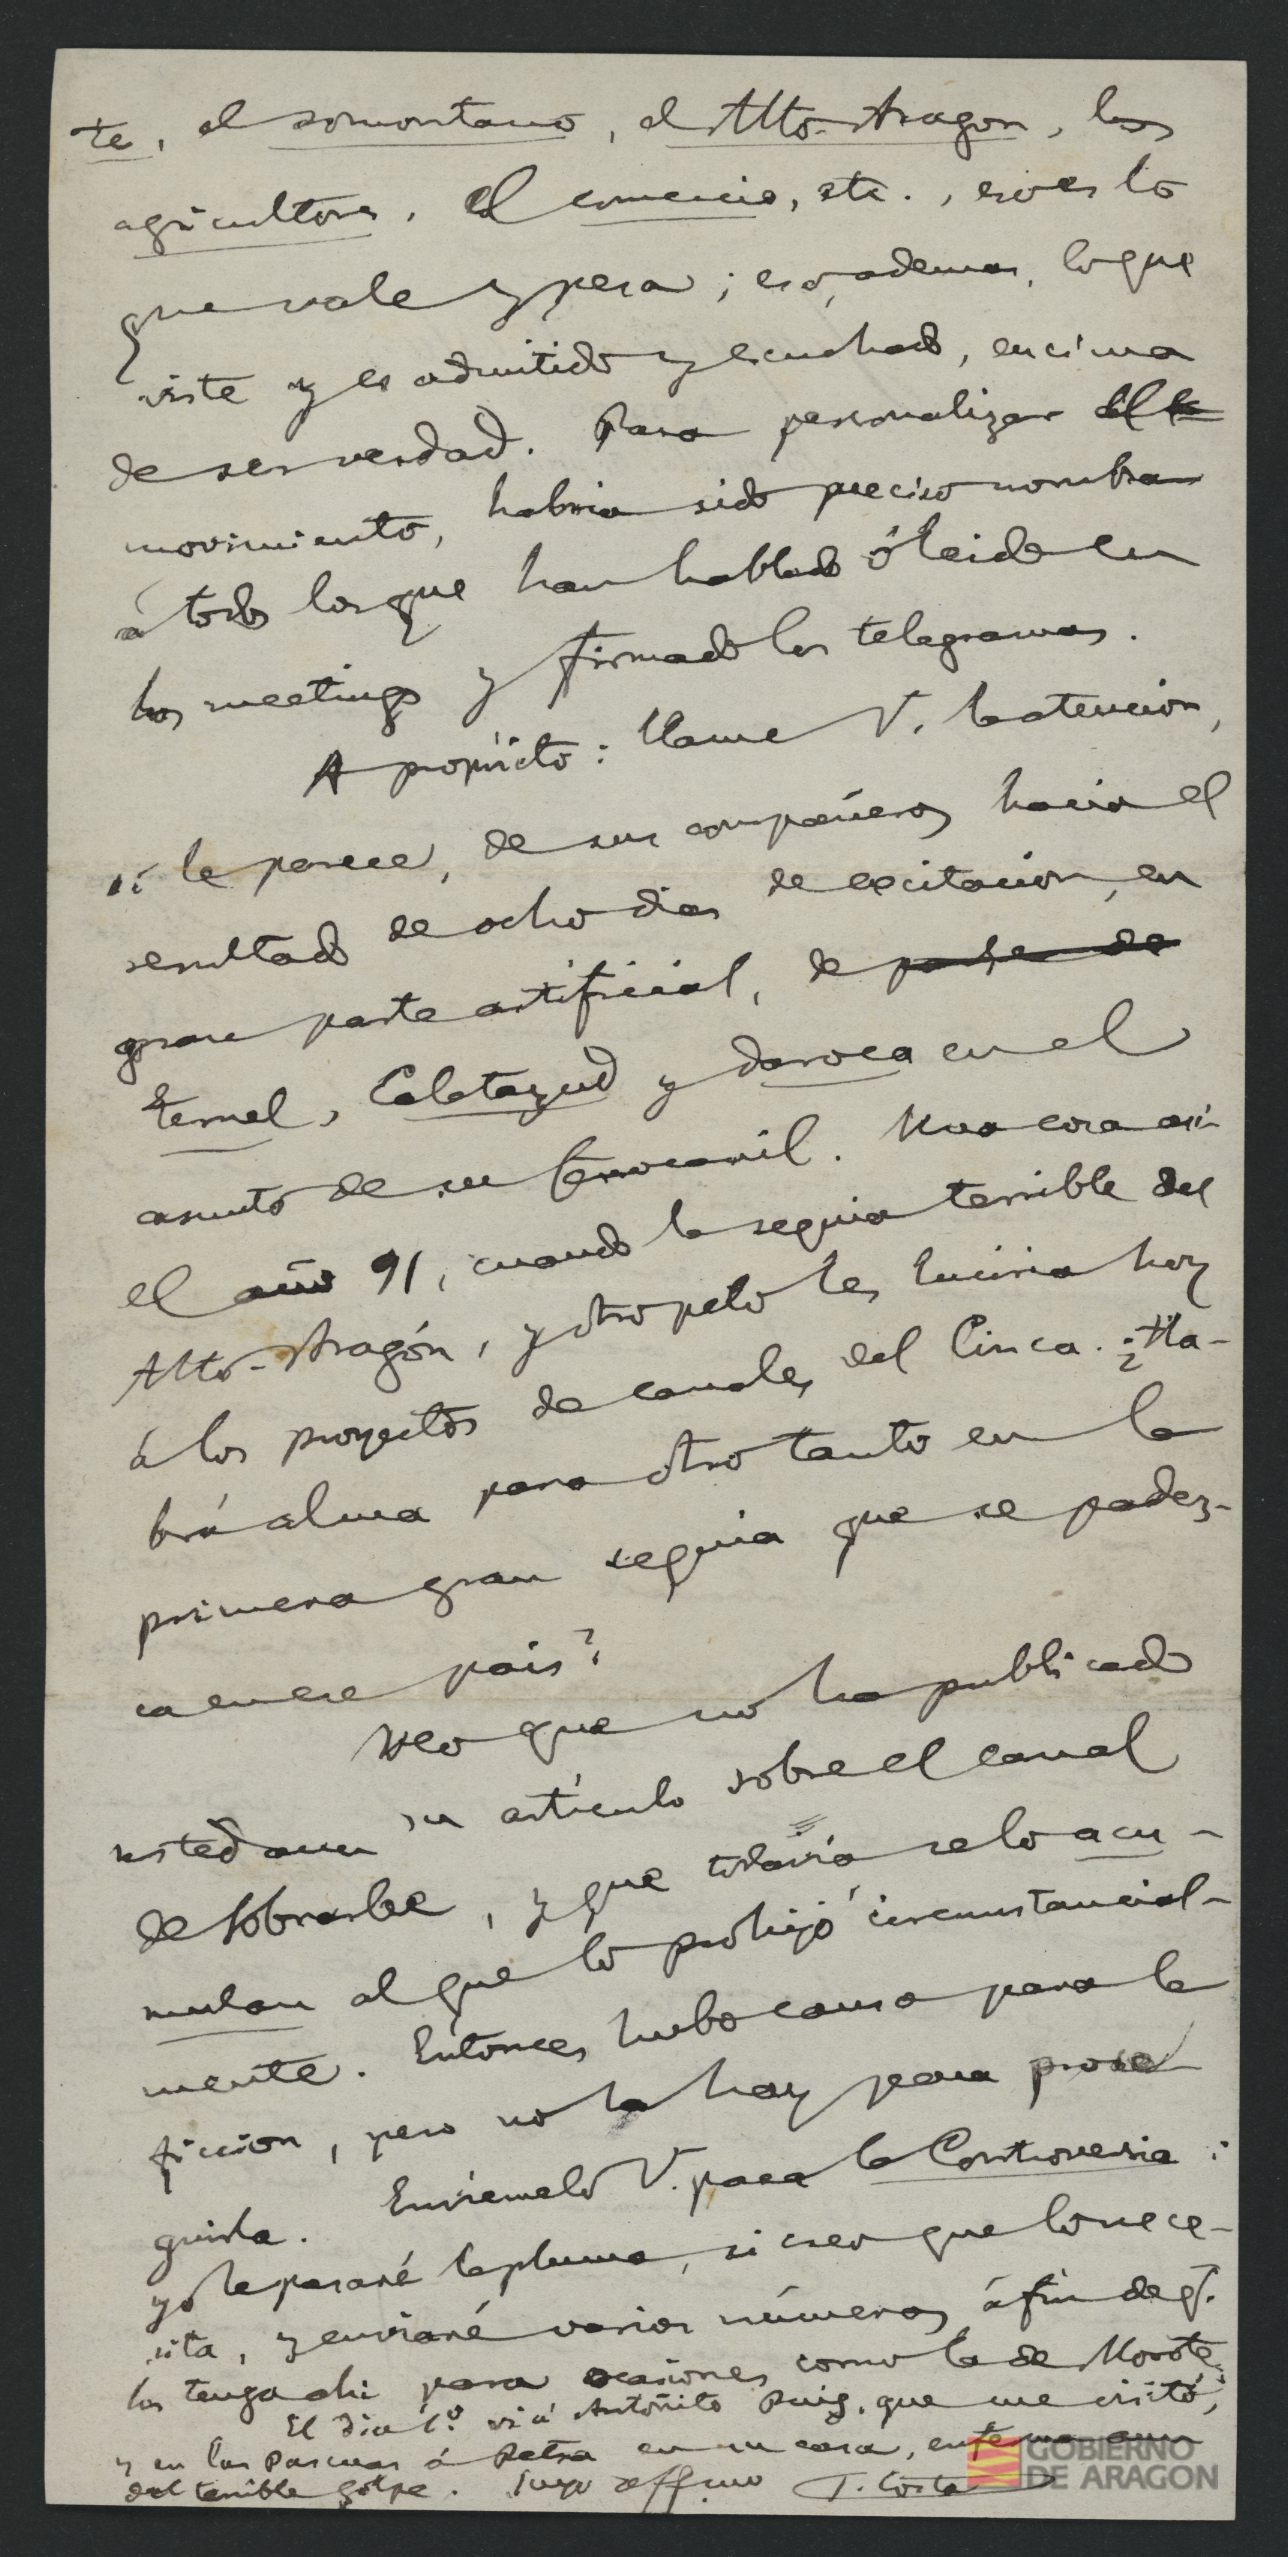 te, el somontano, el Alto-Aragon, los
agricultores, el comercio, etc., eso es lo
que vale y pesa; eso, ademas, lo que
viste y es admitido y escuchado, encima
de ser verdad. Para personalizar el
movimiento, habria sido preciso nombrar
á todos los que han hablado ó leido en
los meetings y firmado los telegramas.
A propósito: llame V. la atencion,
si le parece, de sus compañeros hacia el
resultado de ocho dias de excitacion, en
gran parte artificial, de parte de
Teruel, Calatayud y Daroca en el
asunto de su ferrocarril. Una cosa asi
el año 91, cuando la sequia terrible del
Alto-Aragón, y otro pelo les luciria hoy
á los proyectos de canales del Cinca. ¿Ha-
brá alma para otro tanto en la
primera gran sequia que se padez-
ca en ese pais?
Veo que no ha publicado
usted aun su articulo sobre el canal
de Sobrarbe, y que todavia se lo acu-
mulan al que lo prohijó circunstancial-
mente. Entonces hubo causa para la
ficcion, pero no la hay para prose
guirla. Envíemelo V. para la Controversia:
yo le pasaré la pluma, si creo que lo nece-
sita, y enviaré varios números á fin de q.
los tenga ahi para ocasiones como la de Morote.
El dia 1º vi á Antoñito Puig, que me visitó,
y en las Pascuas á Petra en su casa, enferma aun
del terrible golpe. Suyo affmo J. Costa
GOBIERNO
DE ARAGON